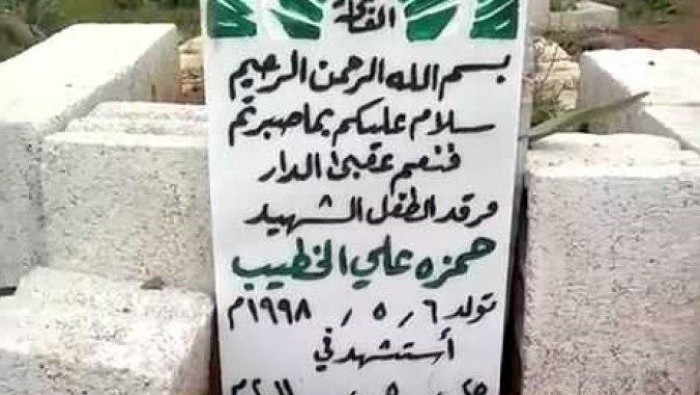 الفاتحة
بسم الله الرحمن الرحيم
سلام عليكم بما صبرتم
فنعم عقبى الدار
مرقد الطفل الشهيد
حمزه علي الخطيب
تولد ٦ / ٥ / ١٩٩٨م
أستشهد في
٢٥ / ٥ / ٢٠١١م